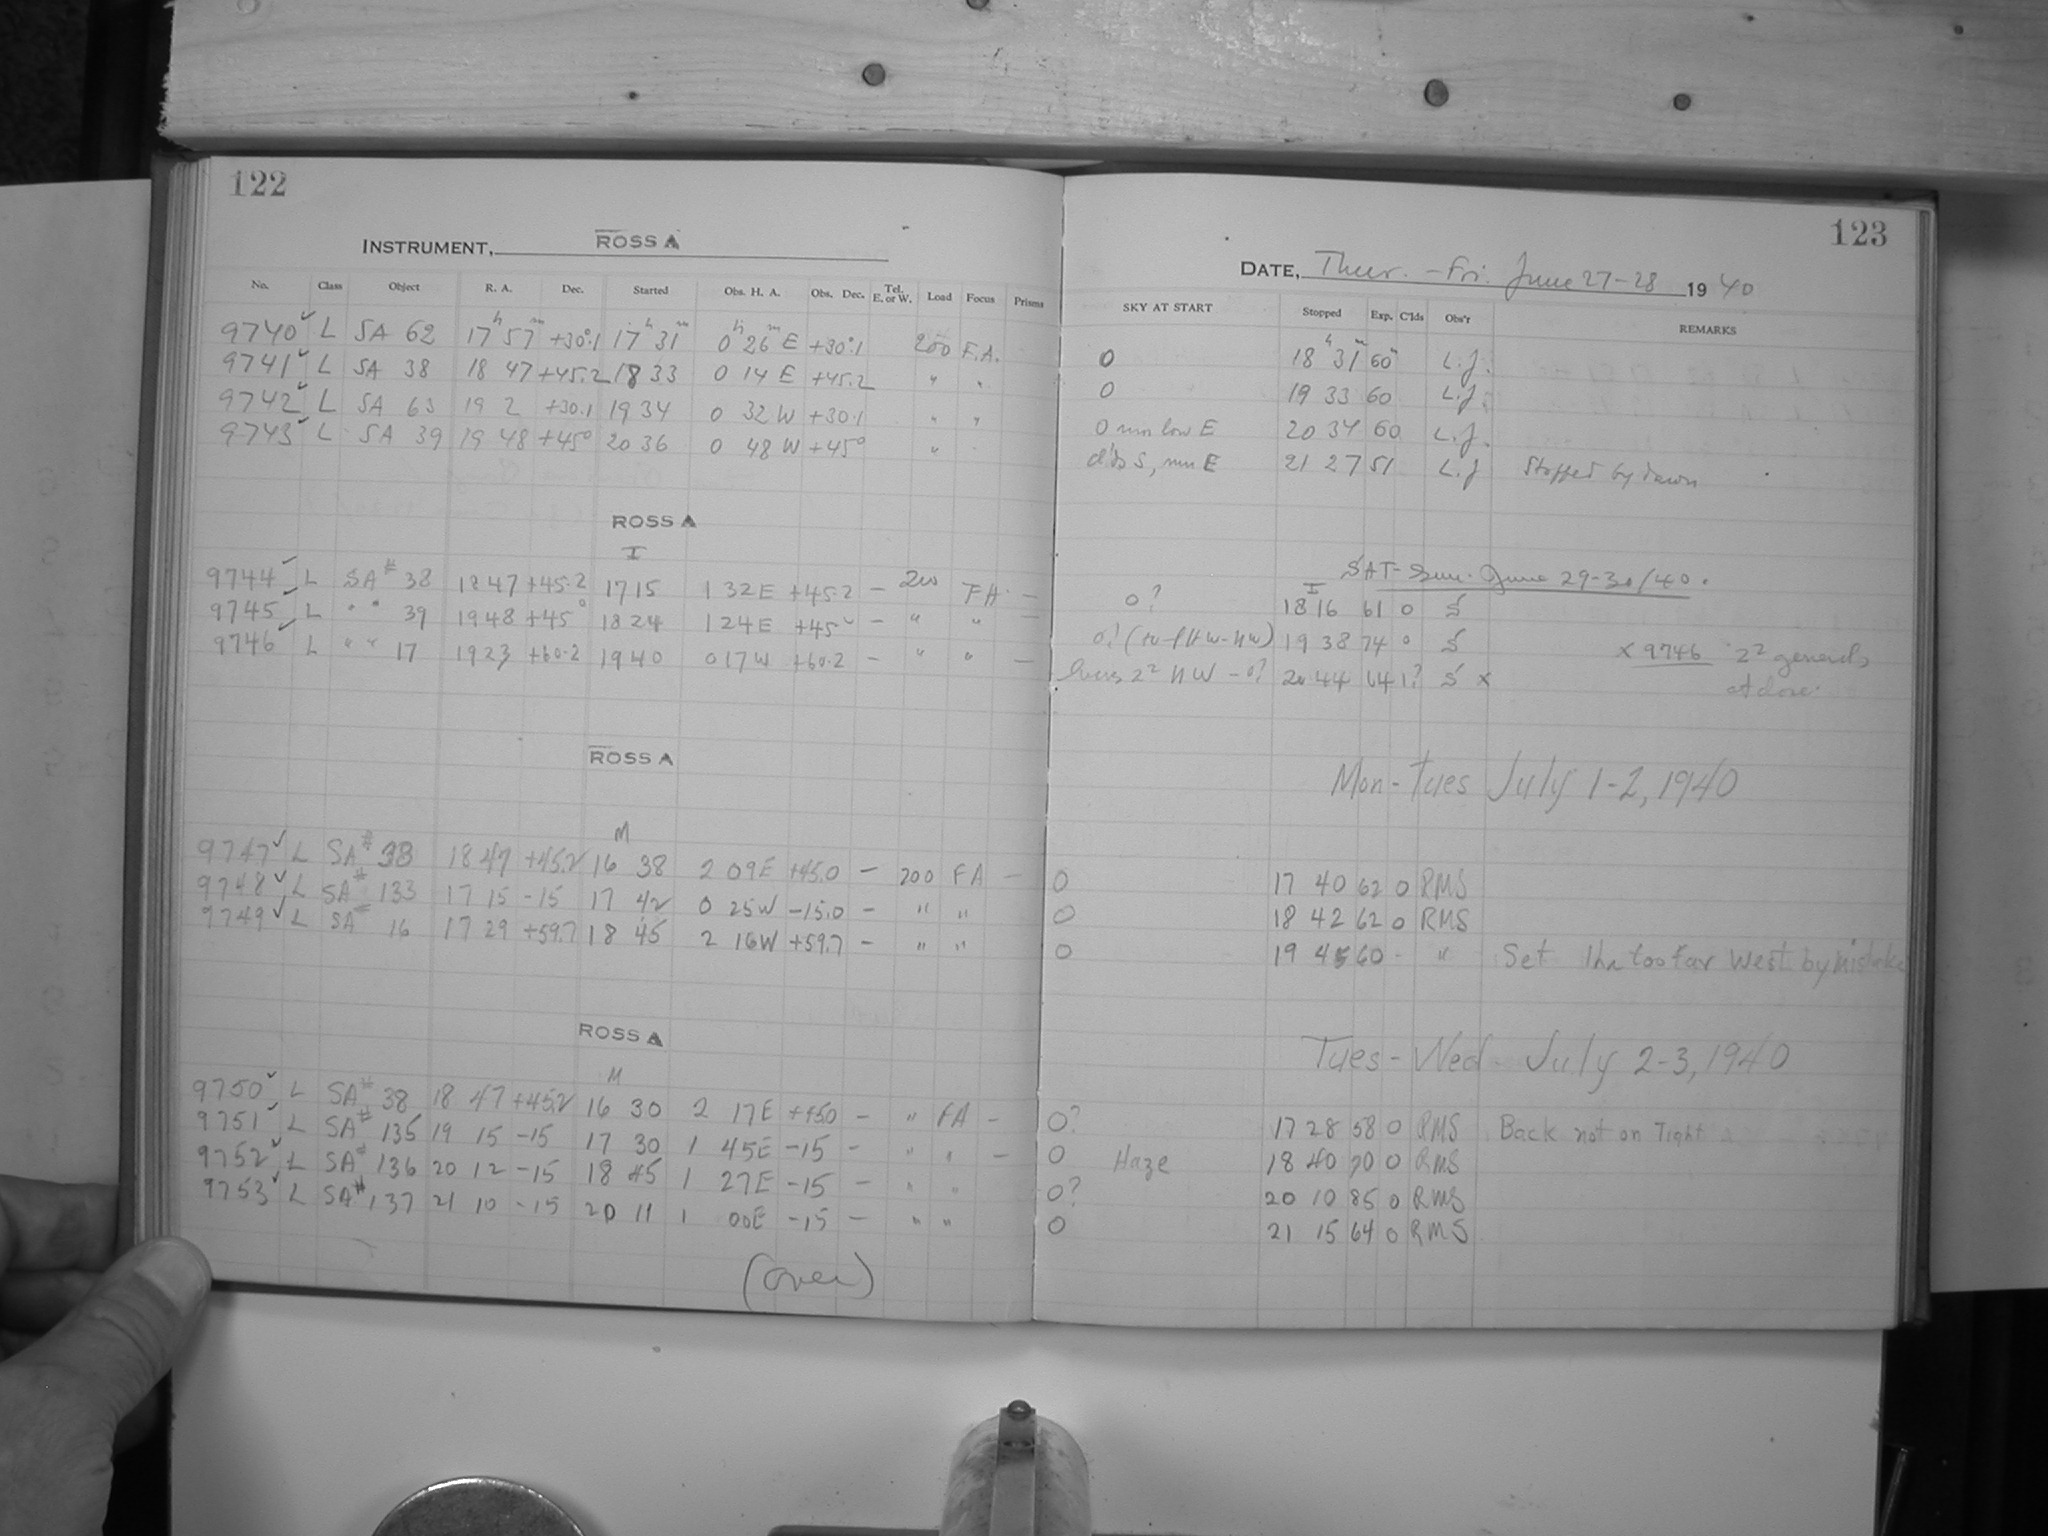 122
INSTRUMENT, ROSS A
No. Class Object R. A. Dec. Started Obs. H. A. Obs. Dec. Tel. E. or W. Load Focus Prisms
9740 ✓ L SA 62 17h 57m +30°.1 17h 31m 0h 26m E +30°.1 200 F.A.
9741 ✓ L SA 38 18 47 +45.2 18 33 0 14 E +45.2 " "
9742 ✓ L SA 63 19 2 +30.1 19 34 0 32 W +30.1 " "
9743 ✓ L SA 39 19 48 +45° 20 36 0 48 W +45° "
ROSS A
I
9744 ✓ L SA# 38 18 47 +45.2 17 15 1 32 E +45.2 – 200 FA –
9745 ✓ L " " 39 19 48 +45° 18 24 1 24 E +45° – " " –
9746 ✓ L " " 17 19 23 +60.2 19 40 0 17 W +60.2 – " " –
ROSS A
M
9747 ✓ L SA# 38 18 47 +45.2 16 38 2 09E +45.0 – 200 FA –
9748 ✓ L SA# 133 17 15 -15 17 42 0 25W -15.0 – " "
9749 ✓ L SA# 16 17 29 +59.7 18 45 2 16W +59.7 – " "
ROSS A
M
9750 ✓ L SA# 38 18 47 +45.2 16 30 2 17E +45.0 – " FA –
9751 ✓ L SA# 135 19 15 -15 17 30 1 45E -15 – " " –
9752 ✓ L SA# 136 20 12 -15 18 45 1 27E -15 – " "
9753 ✓ L SA# 137 21 10 -15 20 11 1 00E -15 – " "
(over)
123
DATE, Thur. – Fri. June 27-28 1940
SKY AT START Stopped Exp. C'lds Obs'r REMARKS
0 18h 31m 60m L.J.
0 19 33 60 L.J.
0 mn low E 20 34 60 L.J.
cl'ds S, mn E 21 27 51 L.J Stopped by dawn
SAT- Sun. June 29-30/40.
I
0? 18 16 61 0 S
19 38 74 0 S x 9746 2² generals
2² NW – 0? 20 44 64 1? S x at close.
Mon-Tues July 1-2, 1940
0 17 40 62 0 RMS
0 18 42 62 0 RMS
0 19 45 60 - " Set 1hr too far West by mistake
Tues-Wed July 2-3, 1940
0? 17 28 58 0 RMS Back not on Tight
0 Haze 18 40 70 0 RMS
0? 20 10 85 0 RMS
0 21 15 64 0 RMS